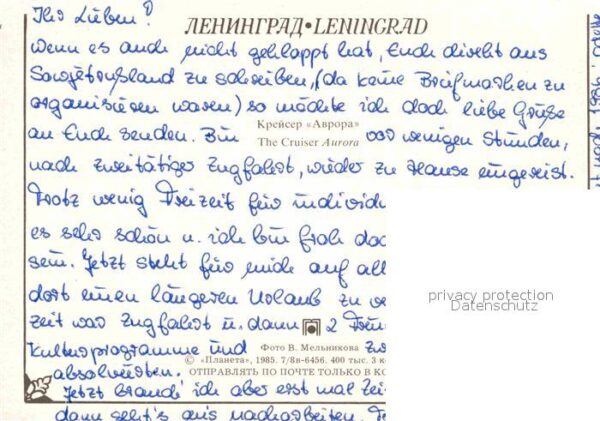 Ihr Lieben!
ЛЕНИНГРАД•LENINGRAD
Wenn es auch nicht geklappt hat, Euch direkt aus
Sowjetrußland zu schreiben, (da keine Briefmarken zu
organisieren waren) so möchte ich doch liebe Grüße
Крейсер «Аврора»
an Euch senden. Bin vor wenigen Stunden,
The Cruiser Aurora
nach zweitätiger Zugfahrt, wieder zu Hause eingereist.
Trotz wenig Freizeit für individu
es sehr schön u. ich bin froh
sein. Jetzt steht für mich auf all
dort einen längeren Urlaub zu
zeit war Zugfahrt u. dann 2
Kulturprogramme und
Фото В. Мельникова
© «Планета», 1985. 7/8в-6456. 400 тыс. 3 к
absolvierten.
ОТПРАВЛЯТЬ ПО ПОЧТЕ ТОЛЬКО В КО
Jetzt brauch' ich aber erst mal Zei
dann geht's ans nacharbeiten.
privacy protection
Datenschutz